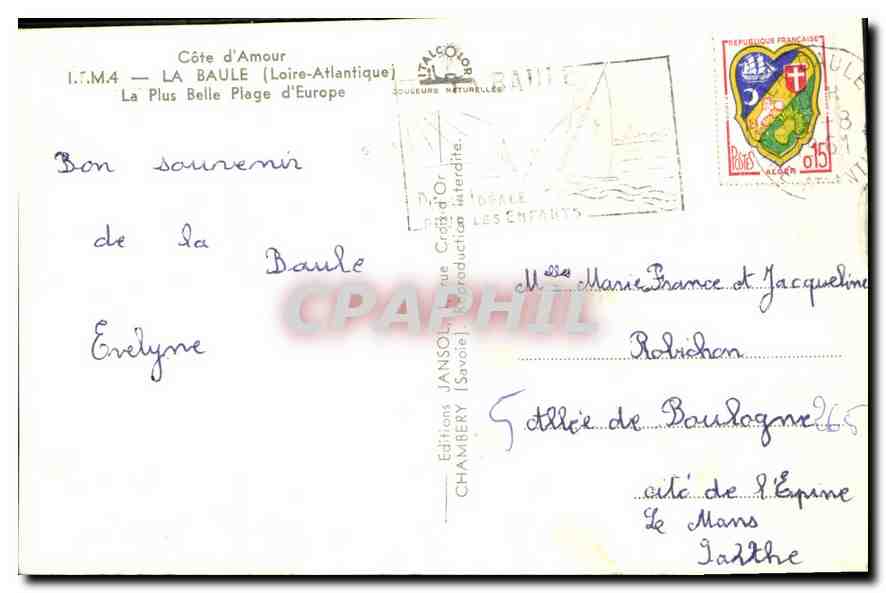 Côte d'Amour
LA BAULE (Loire-Atlantique)
La Plus Belle Plage d'Europe
ITALCOLOR
COULEURS NATURELLES
BAULE
LES ENFANTS
REPUBLIQUE FRANÇAISE
POSTES
ALGER
0,15
Bon souvenir
de la
Baule
Evelyne
Editions JANSOL, rue Croix-d'Or
CHAMBERY (Savoie). Reproduction interdite.
CPAPHIL
Melles Marie France et Jacqueline
Robichon
5 Allée de Boulogne 265
cité de l'Epine
Le Mans
Sarthe